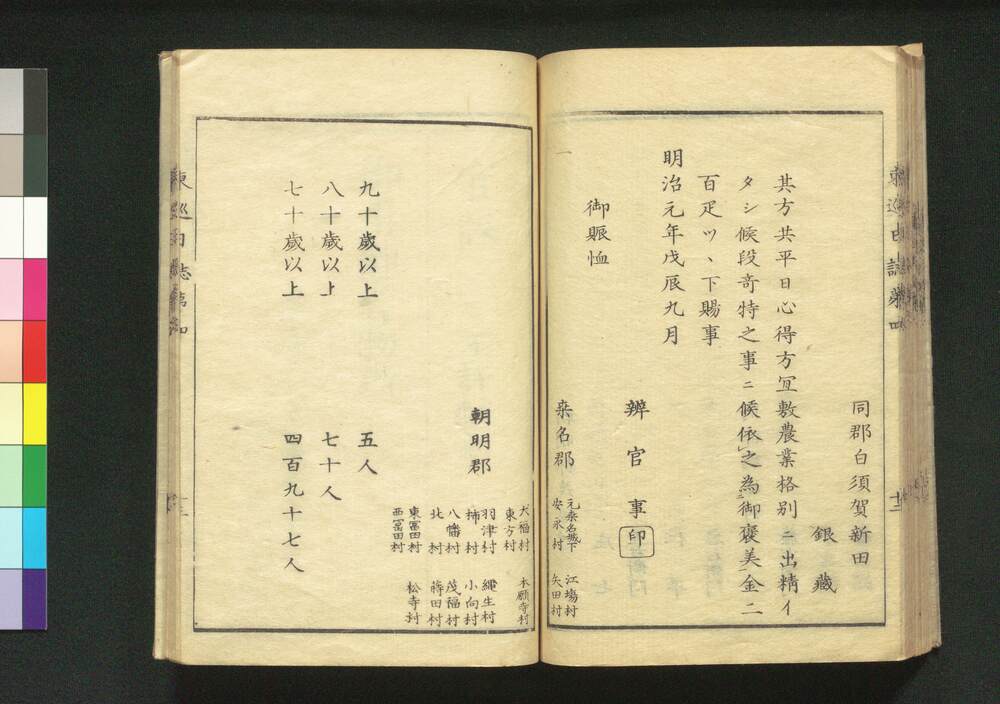 同郡白須賀新田
銀藏
其方共平日心得方冝敷農業格別ニ出精イ
タシ候段奇特之事ニ候依之為御褒美金二
百疋ツヽ下賜事
明治元年戊辰九月
辨官事印
御賑恤
一
桒名郡
元桒名城下
安永村
江塲村
矢田村
大福村
東方村
本願寺村
朝明郡
羽津村
柿村
八幡村
北村
東冨田村
西冨田村
繩生村
小向村
茂福村
蒔田村
松寺村
九十歲以上 五人
八十歲以上 七十人
七十歲以上 四百九十七人